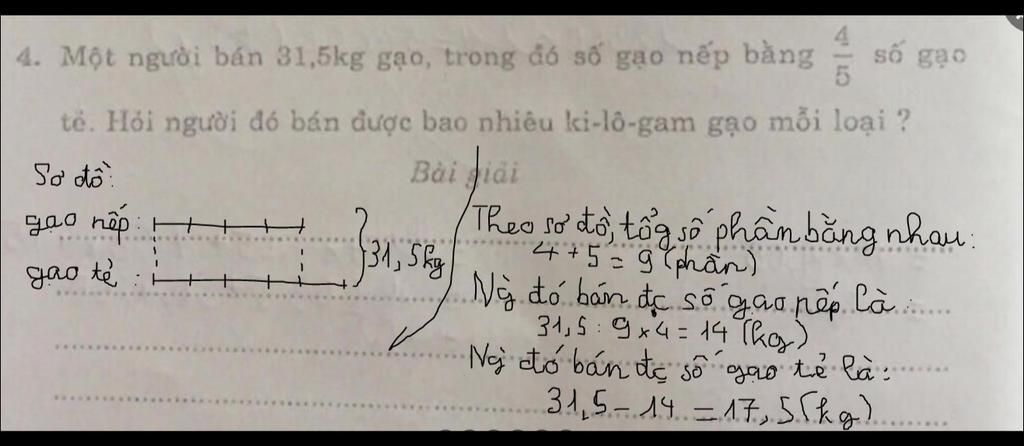 4. Một người bán 31,5kg gạo, trong đó số gạo nếp bằng 4/5 số gạo
tẻ. Hỏi người đó bán được bao nhiêu ki-lô-gam gạo mỗi loại ?
Bài giải
Sơ đồ:
gạo nếp:
gạo tẻ :
31,5kg
Theo sơ đồ, tổng số phần bằng nhau:
4 + 5 = 9 (phần)
Ng` đó bán đc số gạo nếp là:
31,5 : 9 x 4 = 14 (kg)
Ng` đó bán đc số gạo tẻ là:
31,5 - 14 = 17,5 (kg)